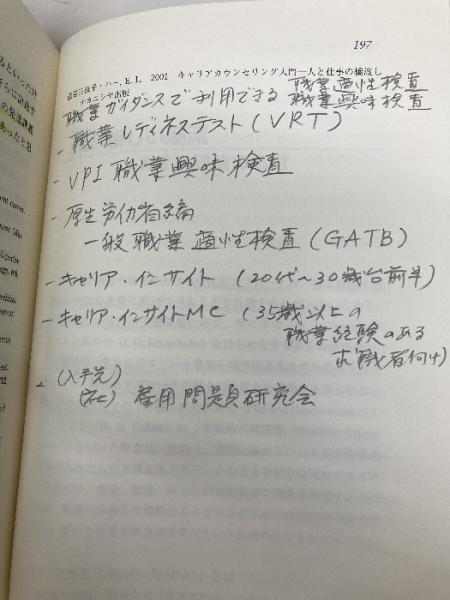 197
渡辺三枝子・ハー, E. L. 2001 キャリアカウンセリング入門―人と仕事の橋渡し
ナカニシヤ出版
職業ガイダンスで利用できる 職業適性検査
職業興味検査
- 職業レディネステスト (VRT)
- VPI 職業興味検査
- 厚生労働省編
一般職業適性検査 (GATB)
- キャリア・インサイト (20代〜30歳台前半)
- キャリア・インサイトMC (35歳以上の
職業経験のある
求職者向け)
(入手先)
(社) 雇用問題研究会